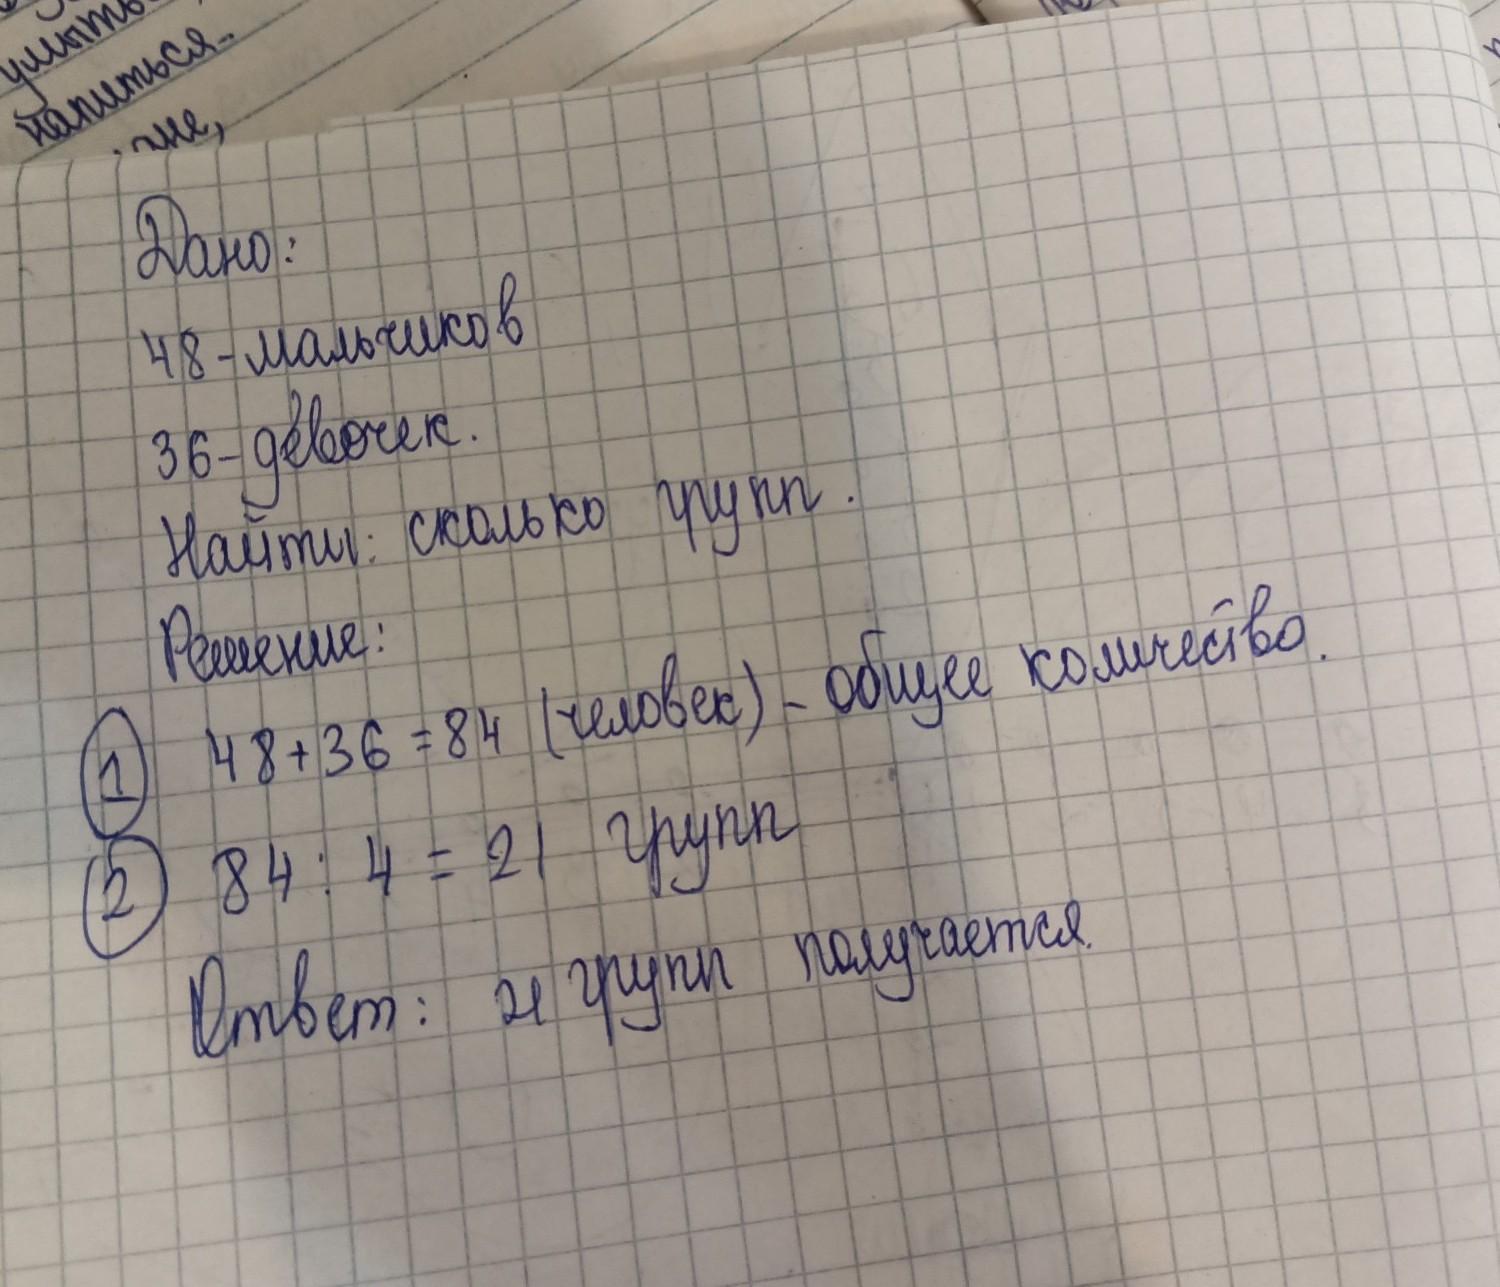 умыть
напиться.
Дано:
48-мальчиков
36-девочек.
Найти: сколько групп.
Решение:
1 48+36=84 (человек) - общее количество.
2 84:4=21 групп
Ответ: 21 групп получается.